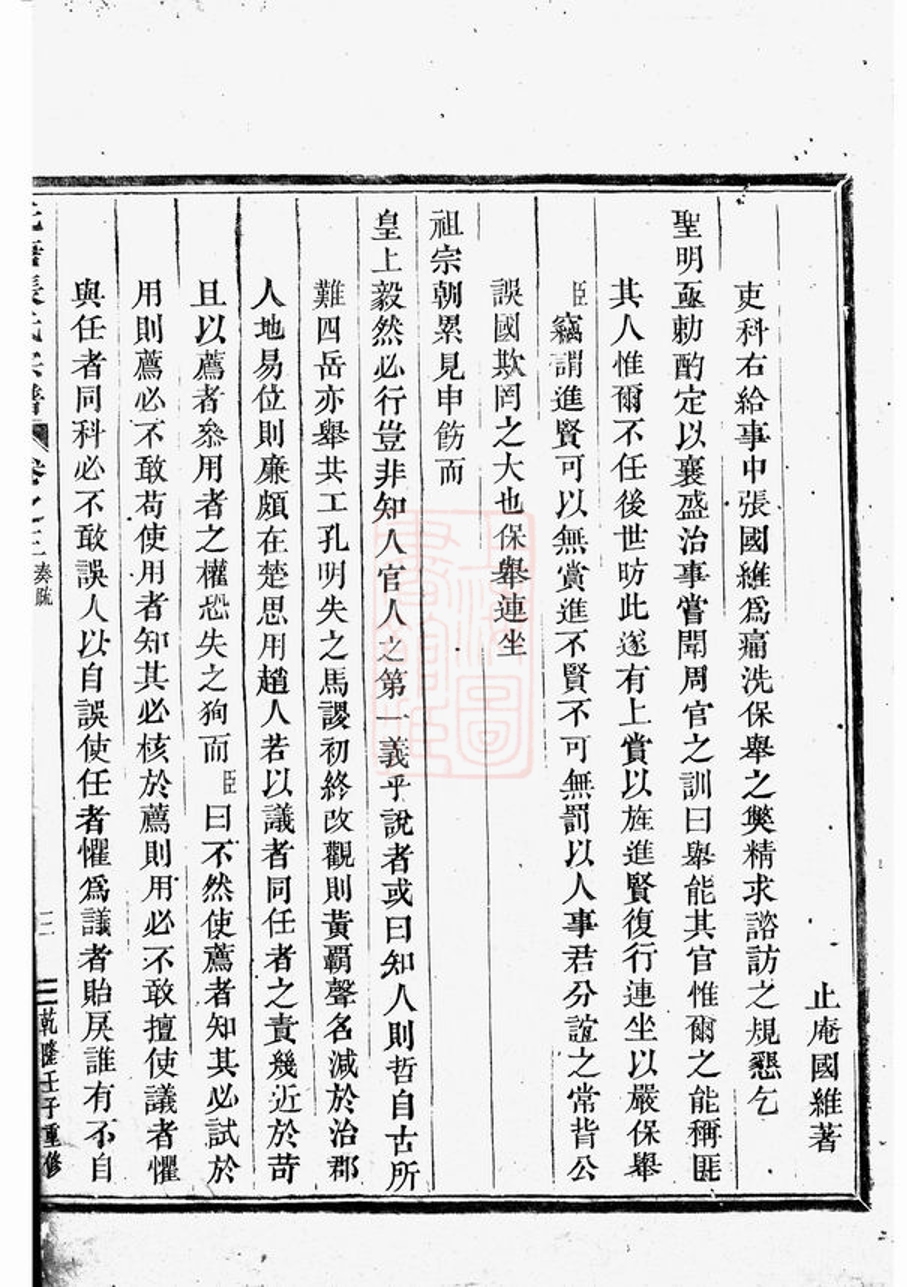 止庵國維著
吏科右給事中張國維爲痛洗保舉之弊精求諮訪之規懇乞
聖明亟勅酌定以襄盛治事嘗聞周官之訓曰舉能其官惟爾之能稱匪
其人惟爾不任後世昉此遂有上賞以旌進賢復行連坐以嚴保舉
臣竊謂進賢可以無賞進不賢不可無罰以人事君分誼之常背公
誤國欺罔之大也保舉連坐
祖宗朝累見申飭而
皇上毅然必行豈非知人官人之第一義乎說者或曰知人則哲自古所
難四岳亦舉共工孔明失之馬謖初終改觀則黃覇聲名減於治郡
人地易位則廉頗在楚思用趙人若以議者同任者之責幾近於苛
且以薦者叅用者之權恐失之狥而臣曰不然使薦者知其必試於
用則薦必不敢苟使用者知其必核於薦則用必不敢擅使議者懼
與任者同科必不敢誤人以自誤使任者懼爲議者貽戾誰有不自
張氏宗譜 卷之三 奏疏 三 乾隆壬子重修